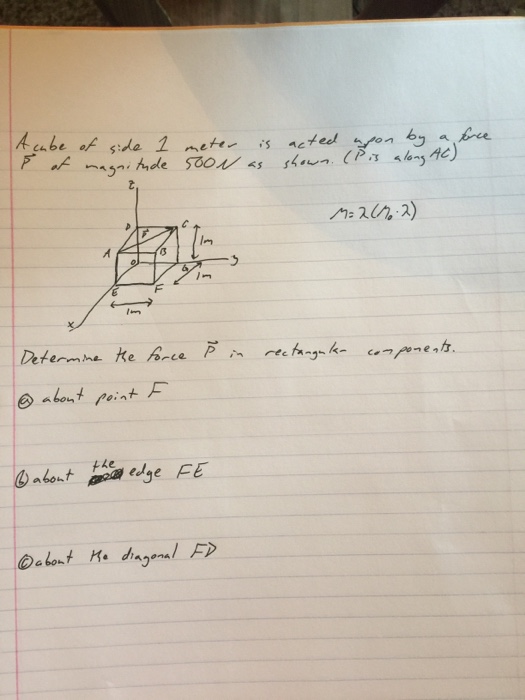 A cube of side 1 meter is acted upon by a force
P of magnitude 500N as shown. (P is along AC)
z
M=λ(M₀·λ)
D P C
1m
A B
O G y
1m
E F
x 1m
Determine the force P in rectangular components.
ⓐ about point F
ⓑ about the edge FE
ⓒ about the diagonal FD